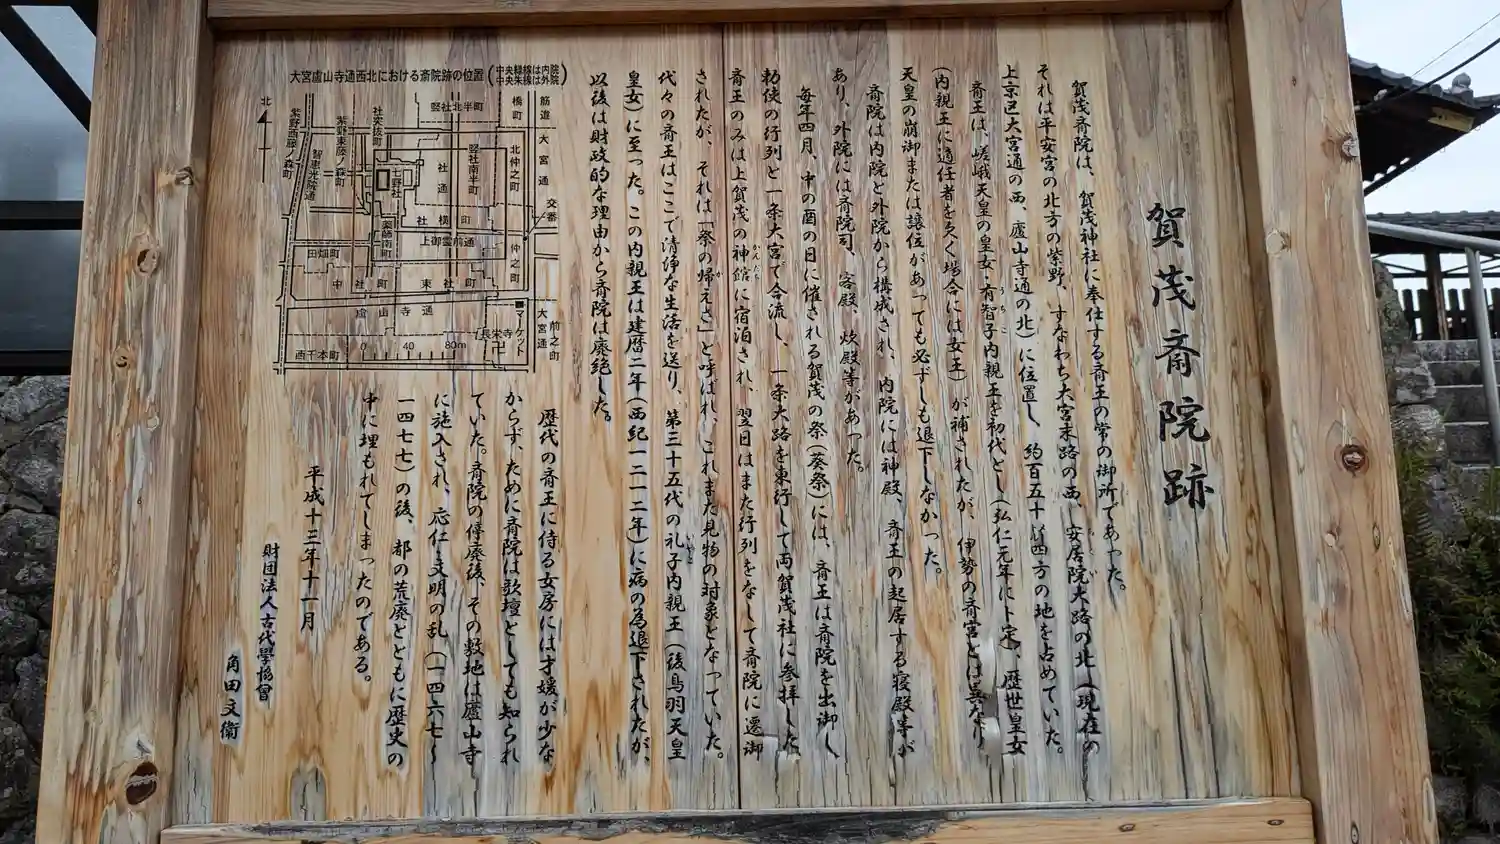 賀茂斎院跡
賀茂斎院は、賀茂神社に奉仕する斎王の常の御所であった。
それは平安宮の北方の紫野、すなわち大宮末路の西、安居院大路の北(現在の
上京区大宮通の西、廬山寺通の北)に位置し、約百五十㍍四方の地を占めていた。
斎王は、嵯峨天皇の皇女・有智子内親王を初代とし(弘仁元年に卜定)、歴世皇女
(内親王に適任者を欠く場合には女王)が補されたが、伊勢の斎宮とは異なり、
天皇の崩御または譲位があっても必ずしも退下しなかった。
斎院は内院と外院から構成され、内院には神殿、斎王の起居する寝殿等が
あり、外院には斎院司、客殿、炊殿等があった。
毎年四月、中の酉の日に催される賀茂の祭(葵祭)には、斎王は斎院を出御し、
勅使の行列と一条大宮で合流し、一条大路を東行して両賀茂社に参拝した。
斎王のみは上賀茂の神館に宿泊され、翌日はまた行列をなして斎院に還御
されたが、それは「祭の帰えさ」と呼ばれ、これまた見物の対象となっていた。
代々の斎王はここで清浄な生活を送り、第三十五代の礼子内親王(後鳥羽天皇
皇女)に至った。この内親王は建暦二年(西紀一二一二年)に病の為退下されたが、
以後は財政的な理由から斎院は廃絶した。
歴代の斎王に侍る女房には才媛が少な
からず、ために斎院は歌壇としても知られ
ていた。斎院の停廃後、その敷地は廬山寺
に施入され、応仁・文明の乱(一四六七〜
一四七七)の後、都の荒廃とともに歴史の
中に埋もれてしまったのである。
平成十三年十一月
財団法人古代學協會
角田文衛
大宮盧山寺通西北における斎院跡の位置(中央緑線は内院
中央朱線は外院)
北
紫野西藤ノ森町
智恵光院通
紫野東藤ノ森町
社突抜町
竪社北半町
橋町
筋違
大宮通
北仲之町
竪社南半町
社通
七野社
交番
社横町
薬師南町
上御霊前通
仲之町
田畑町
中社町
東社町
盧山寺通
マーケット
大宮通
前之町
長栄寺
西千本町
0 40 80m